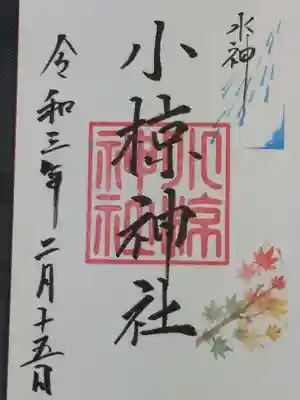 水神
小椋神社
小椋神社
令和三年二月十五日